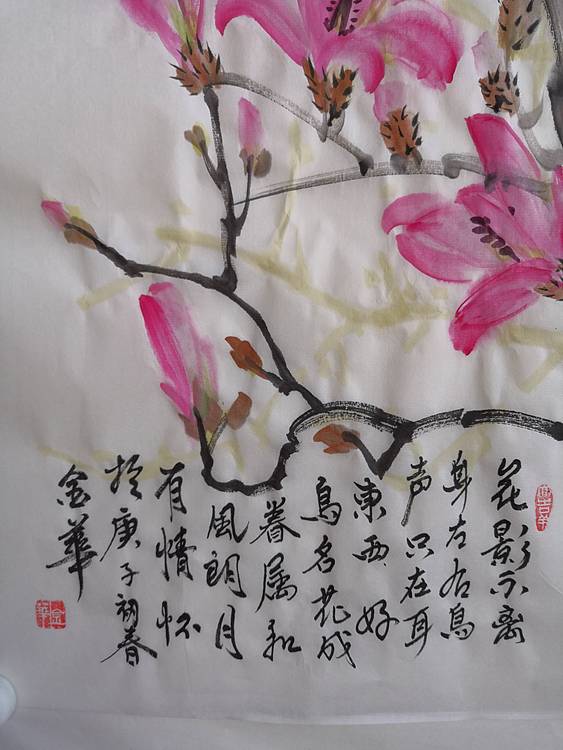 花影不離
身左右鳥
声只在耳
東西好
鳥名花成
眷属和
風朗月
有情怀
於庚子初春
金華
金華